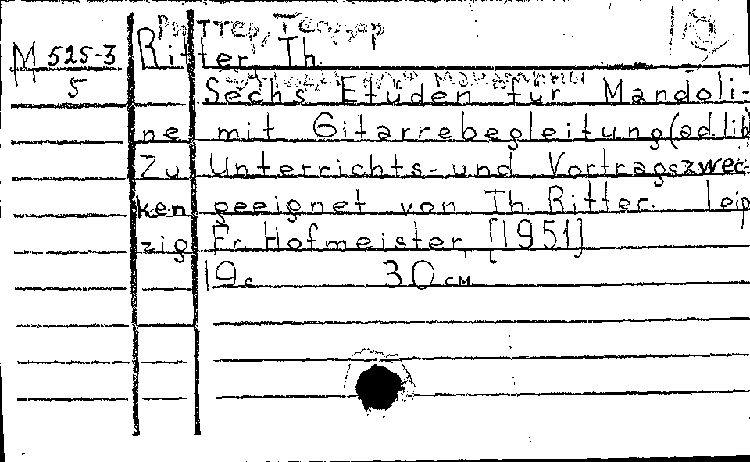 Риттер, Теодор
M 525-3
5
Ritter, Th.
Sechs Etüden für Mandoli-
ne mit Gitarrebegleitung (ad lib
Zu Unterrichts- und Vortragszwec-
ken geeignet von Th. Ritter. Leip
zig Fr. Hofmeister [1951]
19 с 30 см